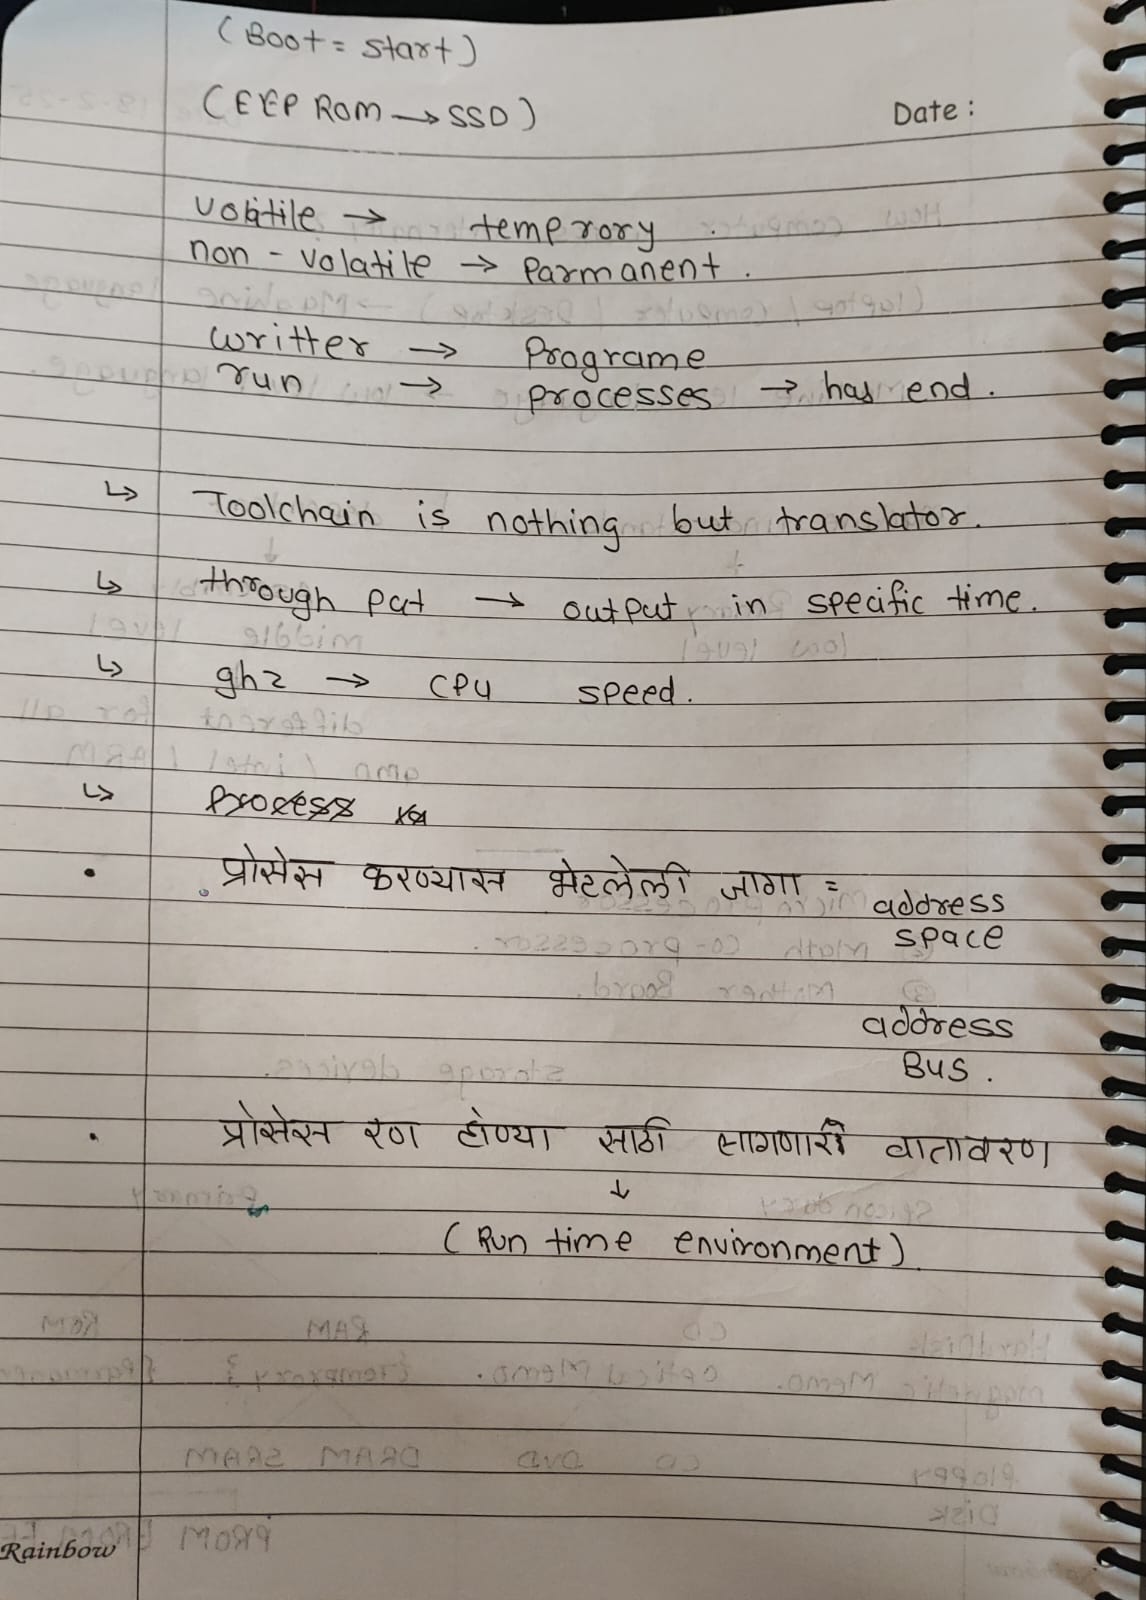 (Boot = start)
(EEPROM → SSD)
Date :
volatile → temprory .
non - volatile → Parmanent .
writter → Programe
run → processes → has end .
↳ Toolchain is nothing but translator.
↳ through put → output in specific time.
↳ ghz → CPU speed.
↳ process
• प्रोसेस करण्यास भेटलेली जागा = address
space
address
Bus .
• प्रोसेस रण होण्या साठी लागणारी वातावरण
↓
(Run time environment)
Rainbow